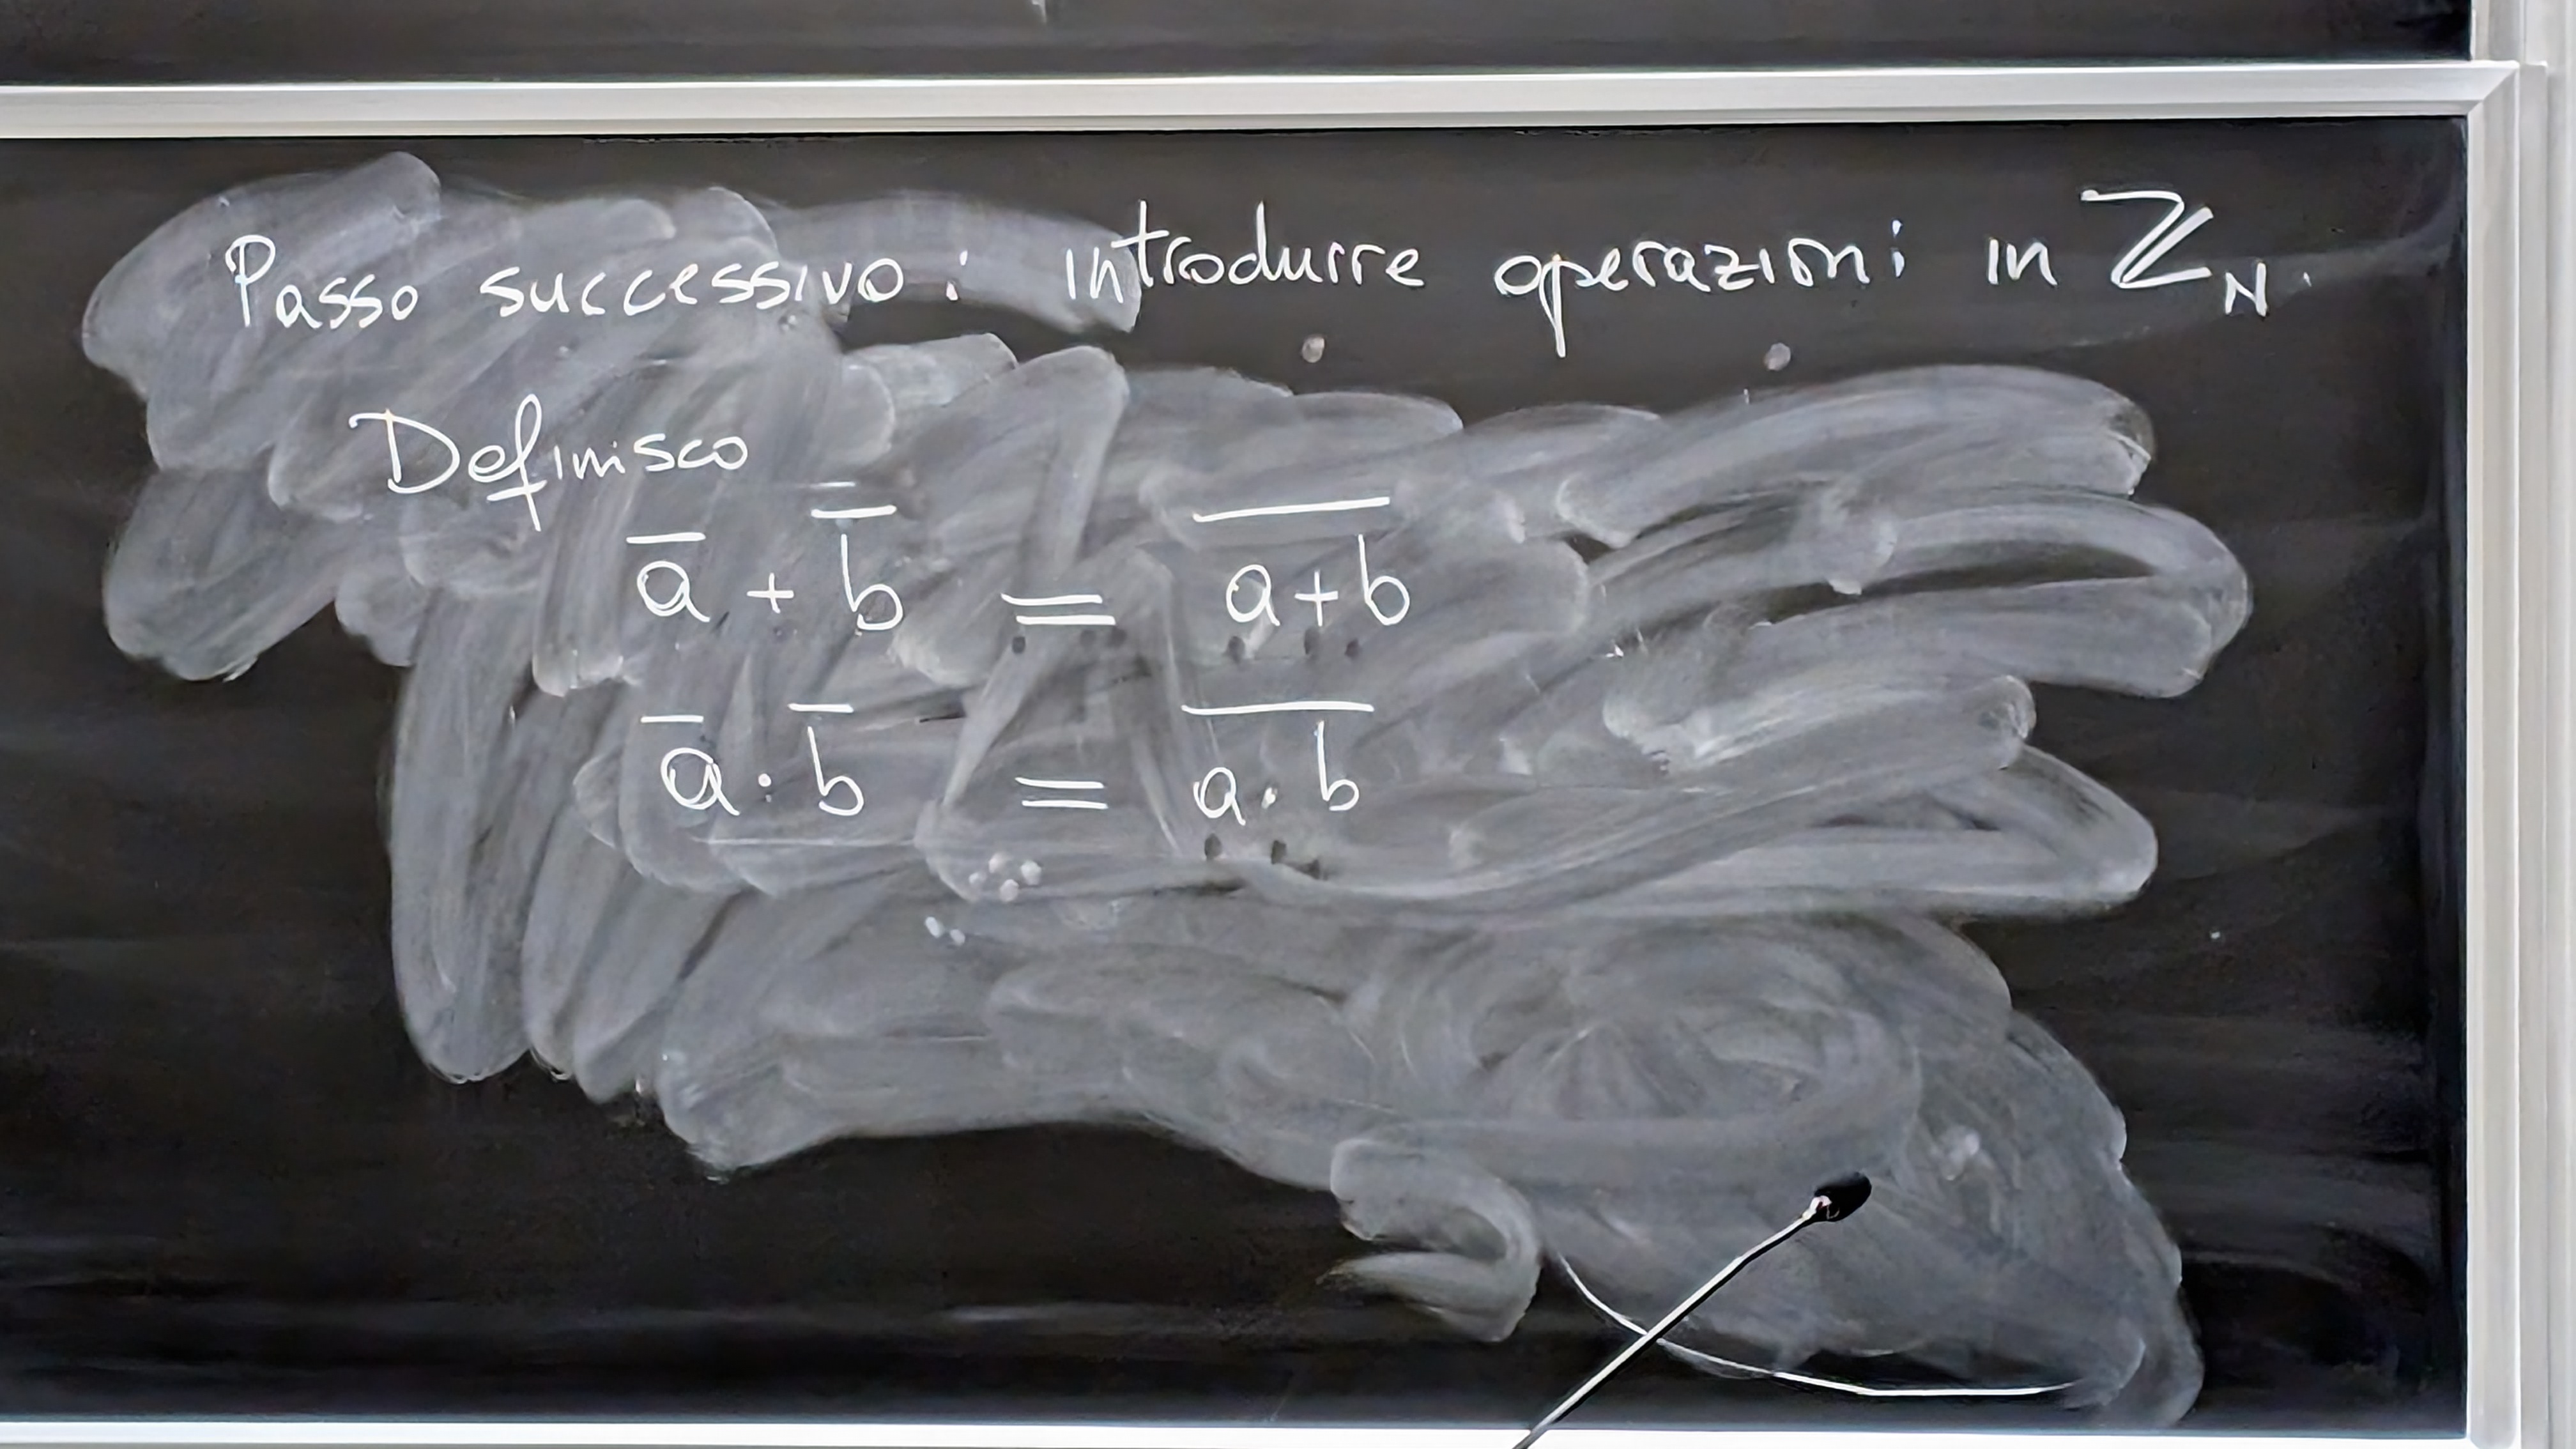 Passo successivo: introdurre operazioni in ℤ_N.
Definisco
a̅ + b̅ = \overline{a+b}
a̅ · b̅ = \overline{a·b}